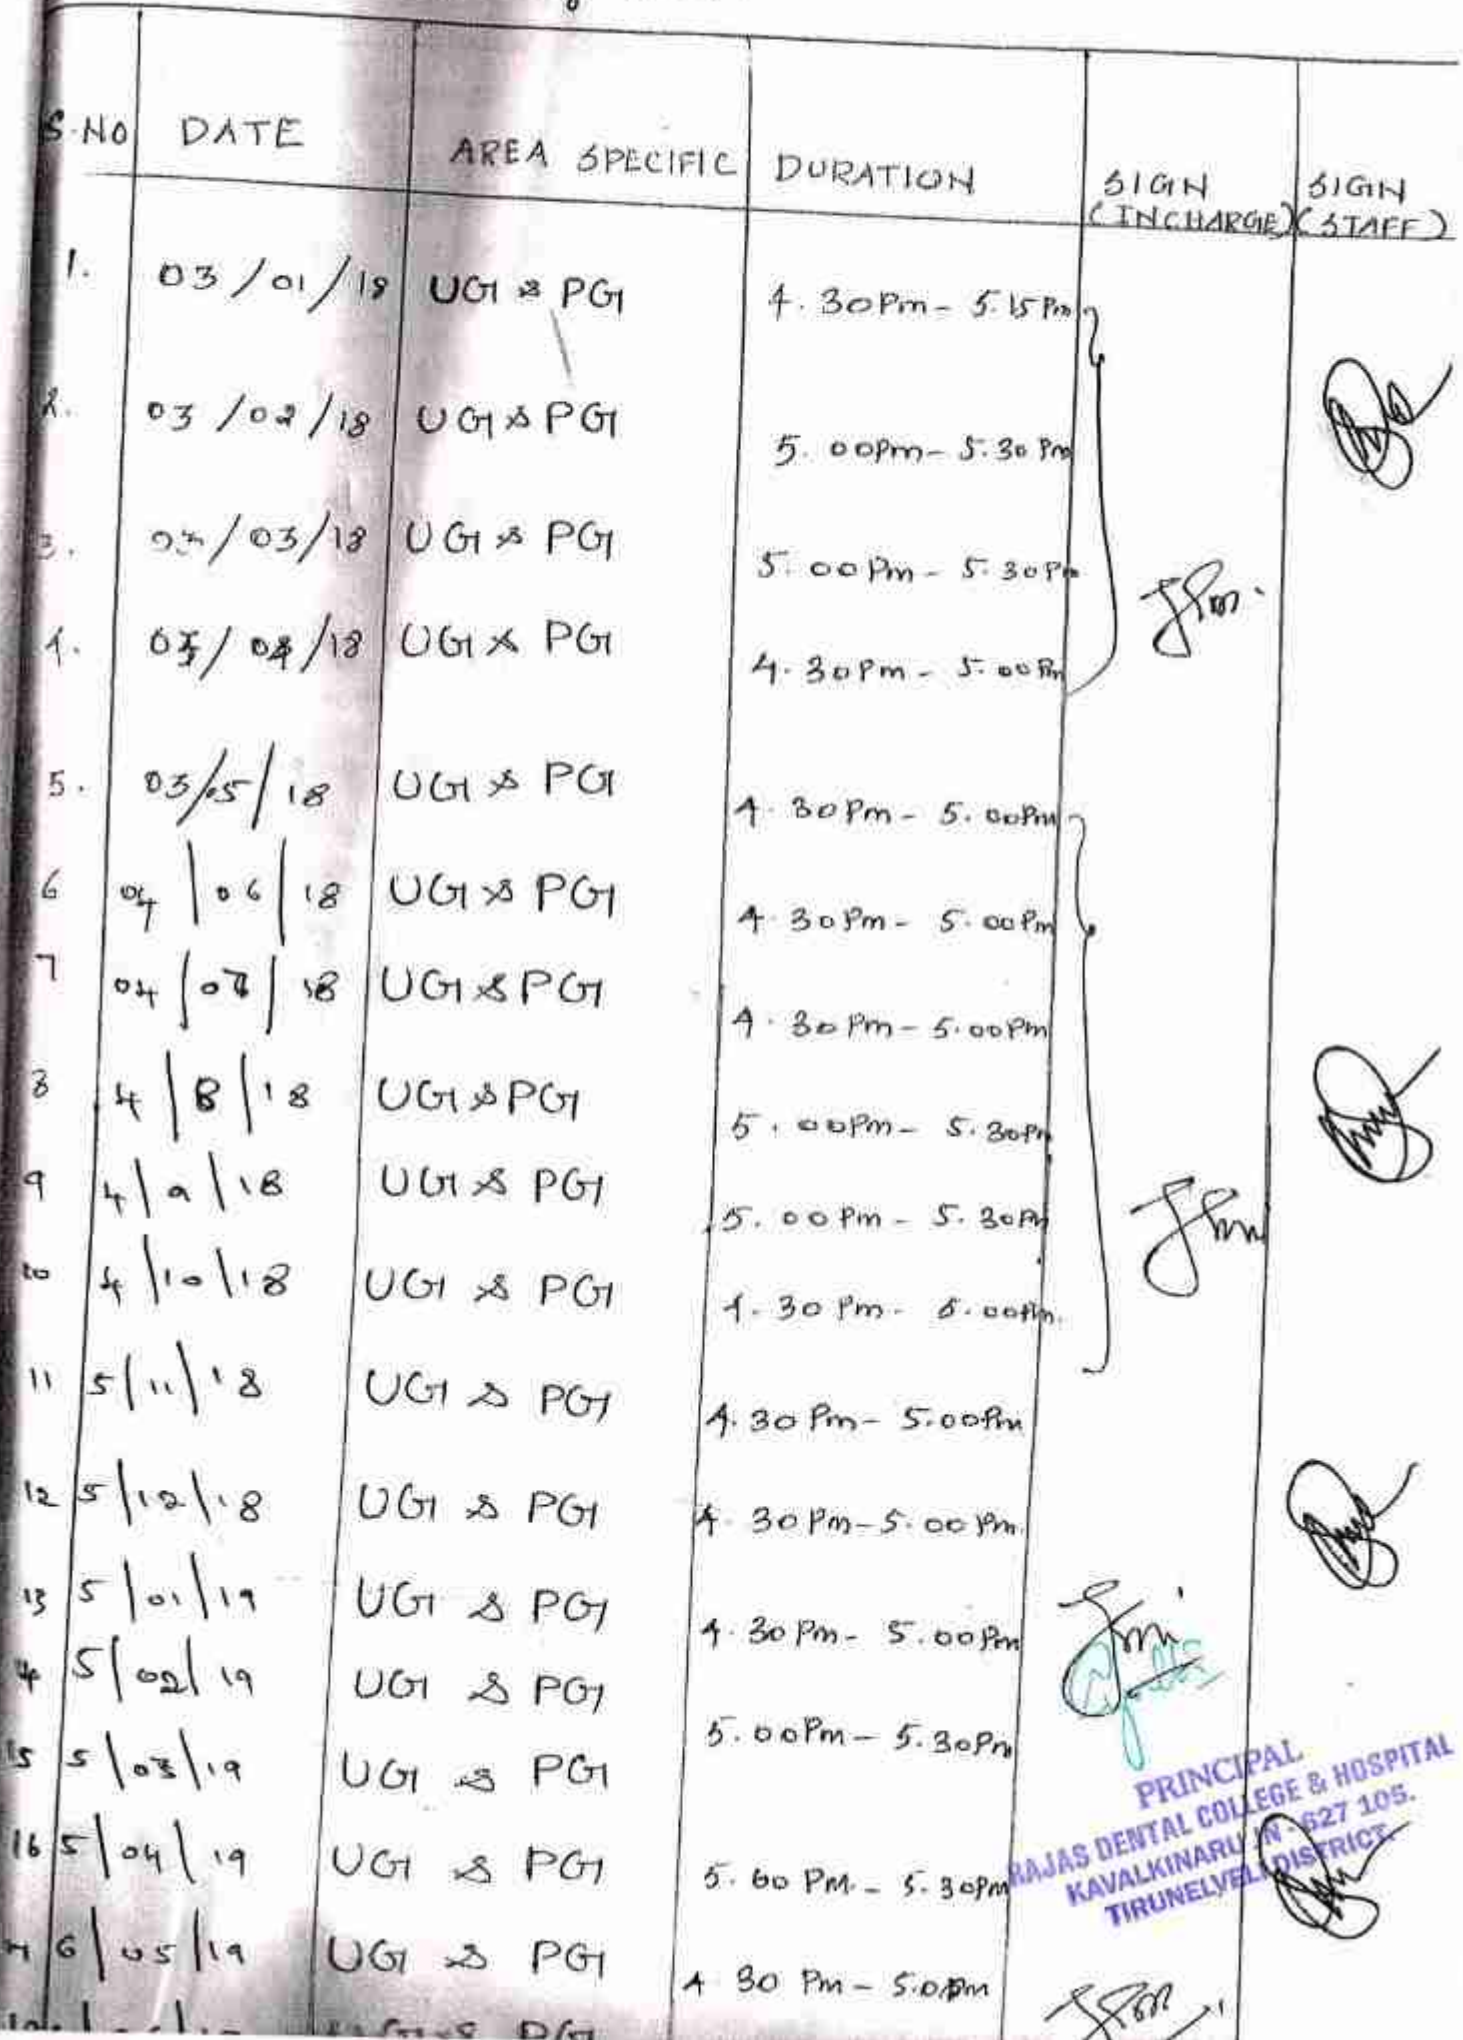 S.NO DATE AREA SPECIFIC DURATION SIGN (INCHARGE) SIGN (STAFF)
1. 03/01/18 UG & PG 4.30Pm - 5.15Pm
2. 03/02/18 UG & PG 5.00Pm - 5.30Pm
3. /03/18 UG & PG 5.00Pm - 5.30Pm
4. /04/18 UG & PG 4.30Pm - 5.00Pm
5. 03/05/18 UG & PG 4.30Pm - 5.00Pm
6 04/06/18 UG & PG 4.30Pm - 5.00Pm
7 04/07/18 UG & PG 4.30Pm - 5.00Pm
8 4/8/18 UG & PG 5.00Pm - 5.30Pm
9 4/9/18 UG & PG 5.00Pm - 5.30Pm
10 4/10/18 UG & PG 4.30Pm - 5.00Pm.
11 5/11/18 UG & PG 4.30Pm - 5.00Pm
12 5/12/18 UG & PG 4.30Pm - 5.00Pm.
13 5/01/19 UG & PG 4.30Pm - 5.00Pm
14 5/02/19 UG & PG 5.00Pm - 5.30Pm
15 5/03/19 UG & PG
16 5/04/19 UG & PG 5.00 PM - 5.30pm
17 6/05/19 UG & PG 4 30 Pm - 5.0pm
PRINCIPAL
RAJAS DENTAL COLLEGE & HOSPITAL
KAVALKINARU JN - 627 105.
TIRUNELVELI DISTRICT.